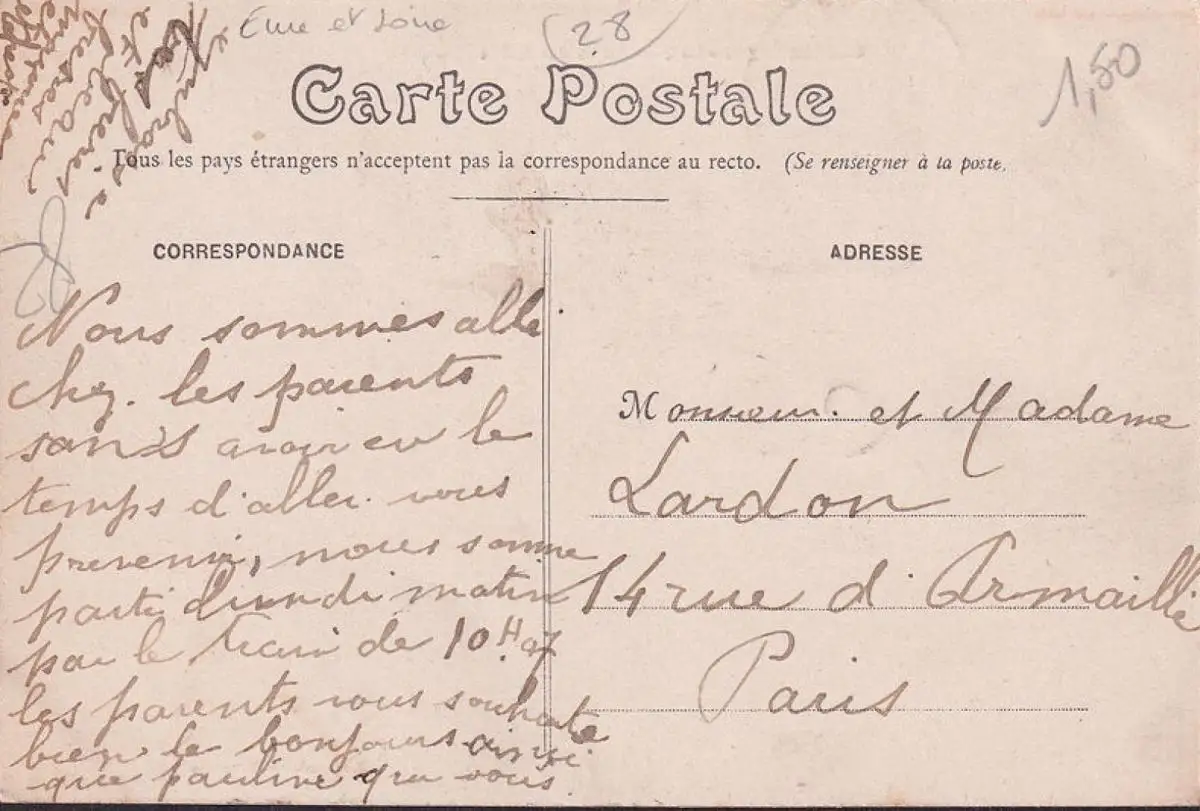 Eure et Loire
28
1,50
Carte Postale
Tous les pays étrangers n'acceptent pas la correspondance au recto. (Se renseigner à la poste.
CORRESPONDANCE
28
Nous sommes allé
chez. les parents
sans avoir eu le
temps d'aller vous
prevenir, nous somme
parti lundi matin
par le train de 10 H 07
les parents vous souhaite
bien le bonjours ainsi
que pauline qui vous
embrasse
ADRESSE
Monsieur et Madame
Lardon
14 rue d'Armaillé
Paris